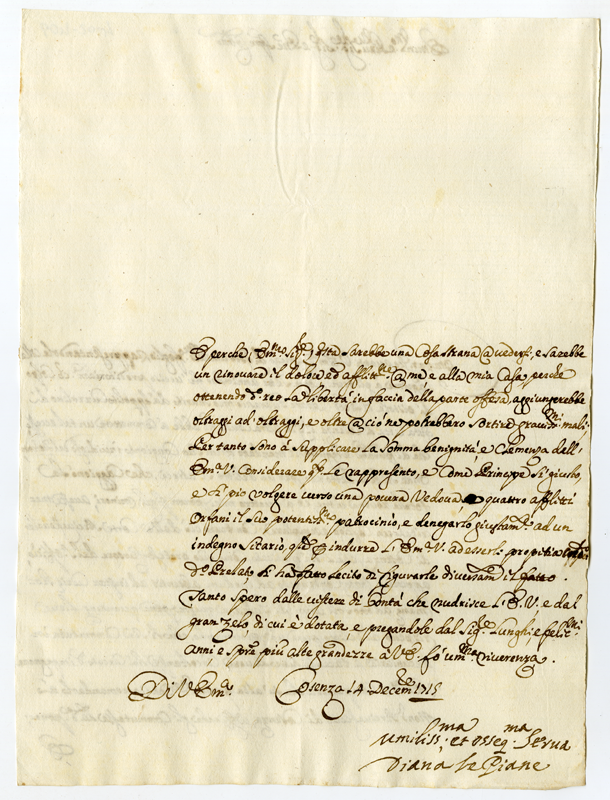 E perche (Em.º Sig.re) q.sta sarebbe una Cosa strana @ vedersi, e sarebbe
un rinovare il dolore ed afflitt.ne @ me e alla mia Casa, perche
ottenendo d.º reo La libertà in faccia della parte offesa, aggiungerebbe
oltraggi ad oltraggi, e oltre @ ciò ne potrebbero sortire graviss.mi mali.
Per tanto sono á supplicare La somma benignità e Clemenza dell'
Em.ª V. Considerare q.to Le rappresento, e Come Principe sì giusto,
e sì pio volgere verso una povera Vedova e quattro afflitti
Orfani il suo potentis.mo patrocinio, e denegarlo giustam.te ad un
indegno Sicario, q.le indurre L' Em.ª V. ad esserli propitia
d.º Prelato si ha fatto lecito di figurarle diversam.te il fatto.
Tanto spero dalle viscere di bontà che nudrisce L' E. V. e dal
gran zelo, di cui è dotata, e pregandole dal Sig.re Lunghi e felic.mi
anni, e sp.re più alte grandezze à V.E. fò um.ma riverenza.
Di V. Em.ª Cosenza 14 Decem.bre 1715
Umiliss.ma et osseq.ma Serva
Diana Le Piane